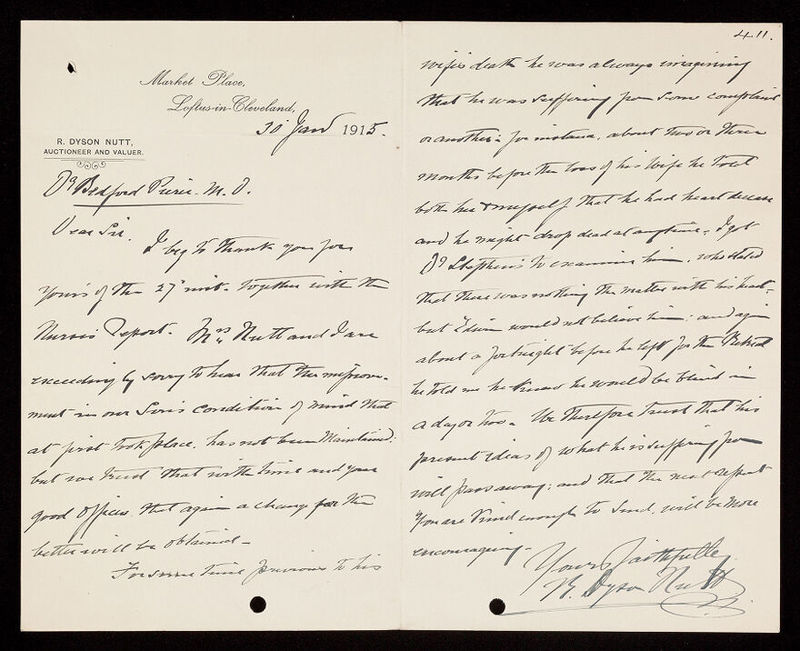 Market Place,
Loftus-in-Cleveland,
30 Jany 1915.
R. DYSON NUTT,
AUCTIONEER AND VALUER.
Dr Bedford Pierce. M.D.
Dear Sir.
I beg to thank you for
yours of the 27 inst. together with the
Nurses Report. Mrs Nutt and I are
exceedingly sorry to hear that the improve-
ment in our Son's condition of mind that
at first took place, has not been maintained:
but we trust that with time and your
good offices, that again a change for the
better will be obtained -
For some time previous to his
411.
wife's death he was always imagining
that he was suffering from some complaint
or another: for instance, about two or three
months before the loss of his wife he told
both her & myself that he had heart disease
and he might drop dead at anytime, I got
Dr Stephens to examine him, who stated
that there was nothing the matter with his heart -
but Edwin would not believe him: and again
about a fortnight before he left for the Retreat
he told me he knew he would be blind in
a day or two. We therefore trust that his
present ideas of what he is suffering from
will pass away; and that the next report
you are kind enough to send, will be more
encouraging -
Yours faithfully
R. Dyson Nutt